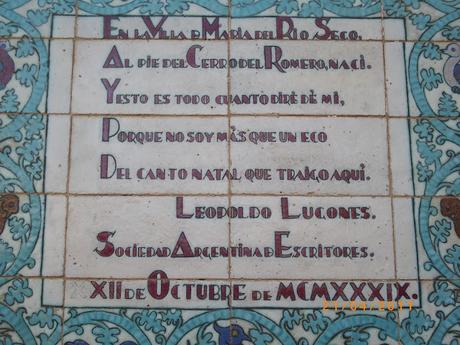 En la Villa d Maria del Rio Seco.
Al pie del Cerro del Romero, naci.
Y esto es todo cuanto diré dè mi,
Porque no soy más que un eco
Del canto natal que traigo aqui.
Leopoldo Lugones.
Sociedad Argentina d Escritores.
XII de Octubre de MCMXXXIX.
21/04/2011